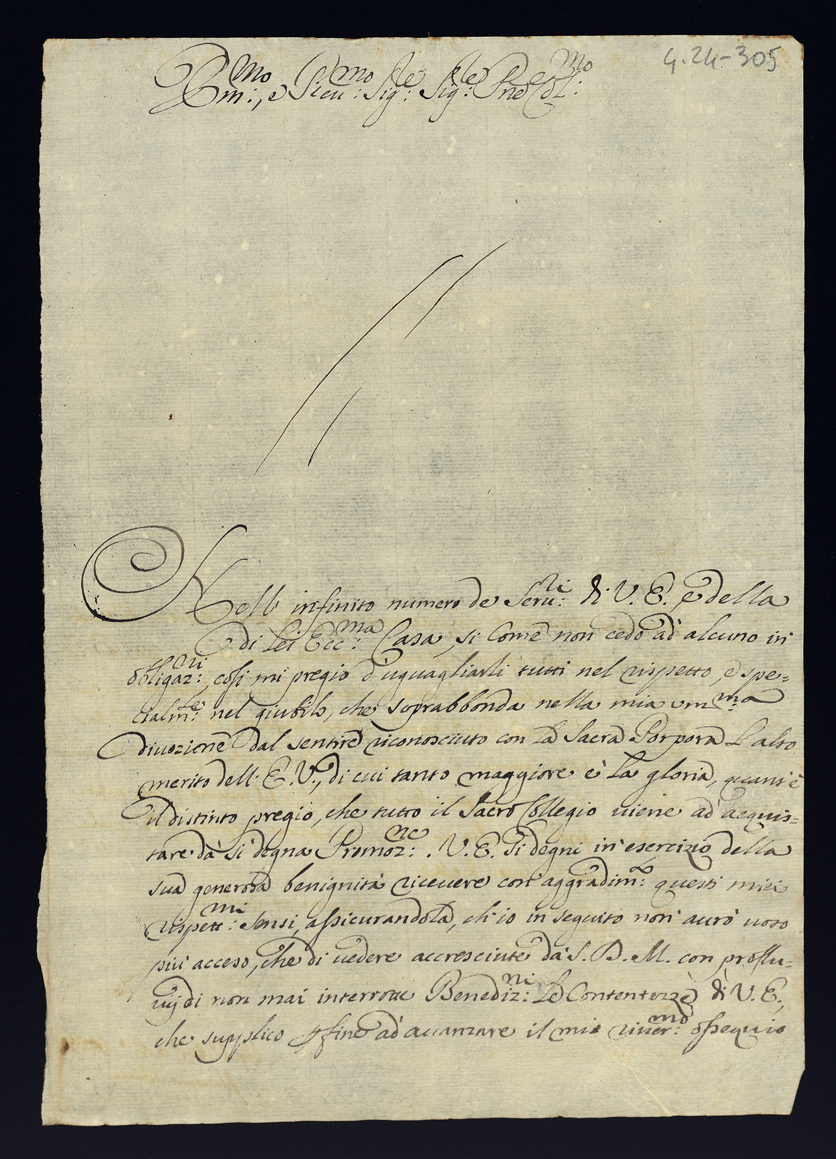 4.24-305
Em:mo, e Reu:mo Sig:re Sig:re Pne Col:mo
Nell infinito numero de Seru:ri di V. E. e della
di Lei Ecc:ma Casa, si come non cedo ad alcuno in
obligaz:ni cosi mi pregio d'uguagliarli tutti nel rispetto, e spe-
cialm:te nel giubilo, che soprabbonda nella mia um:ma
divozione dal sentire riconosciuto con la Sacra Porpora L'alto
merito dell' E. V., di cui tanto maggiore è La gloria, quant'è
il distinto pregio, che tutto il Sacro Collegio viene ad acquis-
tare da si degna Promoz:ne. V. E. si degni in esercizio della
sua generosa benignità ricevere con aggradim:to questi miei
rispett:mi sensi, assicurandola, ch'io in seguito non aurò voto
più acceso, che di vedere accresciute da S. D. M. con proflu-
vij di non mai interrotte Benediz:ni Le Contentezze di V. E.,
che supplico affine ad auanzare il mio river:mo ossequio